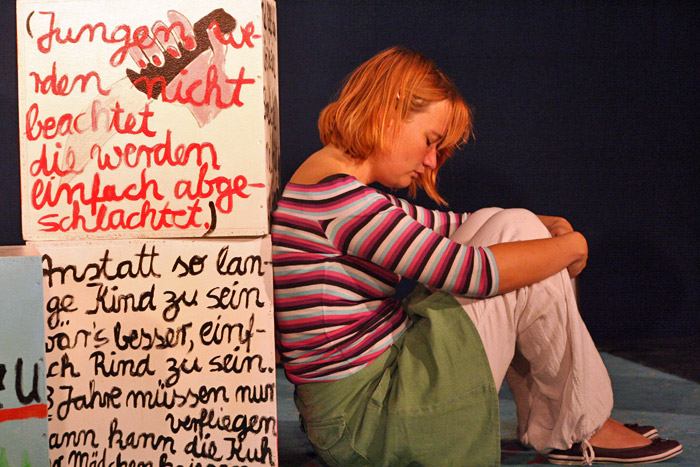 (Jungen we-
rden nicht
beachtet
die werden
einfach abge-
schlachtet.)
Anstatt so lan-
ge Kind zu sein
wär's besser, einf-
ach Rind zu sein.
3 Jahre müssen nur
verfliegen
dann kann die Kuh
Mädchen kriegen